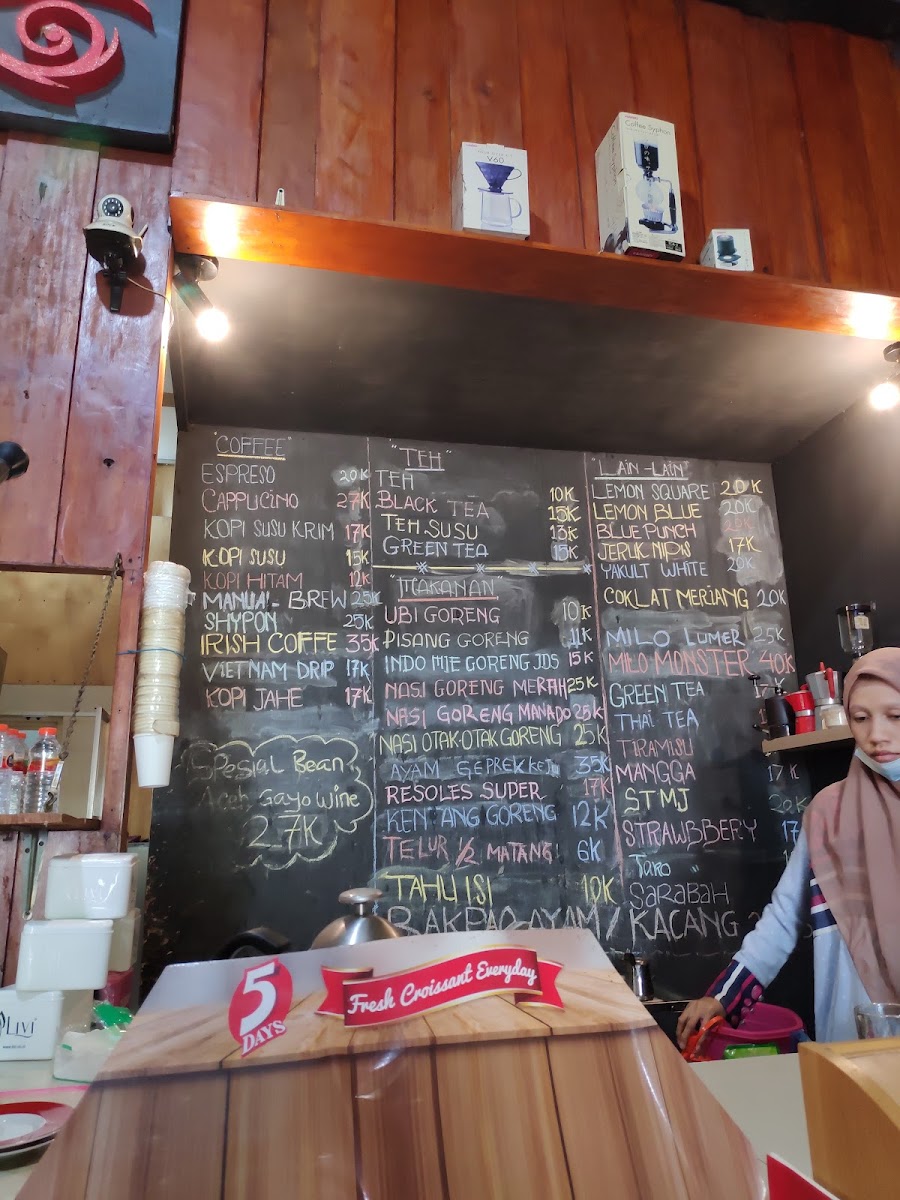 V60
Coffee Syphon
"COFFEE"
ESPRESO 20K
CAPPUCINO 27K
KOPI SUSU KRIM 17K
KOPI SUSU 15K
KOPI HITAM 12K
MANUAL-BREW 25K
SHYPON 25K
IRISH COFFE 35K
VIETNAM DRIP 17K
KOPI JAHE 17K
SPESIAL Bean
Aceh Gayo Wine
27K
"TEH"
TEH 10K
BLACK TEA 15K
TEH SUSU 13K
GREEN TEA 15K
"MAKANAN"
UBI GORENG 10K
PISANG GORENG 11K
INDO MIE GORENG JDS 15K
NASI GORENG MERAH 25K
NASI GORENG MANADO 25K
NASI OTAK-OTAK GORENG 25K
AYAM GEPREK keJu 35K
RESOLES SUPER 17K
KENTANG GORENG 12K
TELUR 1/2 MATANG 6K
TAHU ISI 10K
BAKPAO AYAM / KACANG
"LAIN-LAIN"
LEMON SQUARE 20K
LEMON BLUE 20K
BLUE PUNCH 20K
JERUK NIPIS 17K
YAKULT WHITE 20K
COKLAT MERIANG 20K
MILO LUMER 25K
MILO MONSTER 40K
GREEN TEA
THAI TEA
TIRAMISU
MANGGA 17K
STMJ 20K
STRAWBBERY 17
Taro
SARABAH
5 DAYS
Fresh Croissant Everyday
LIVI